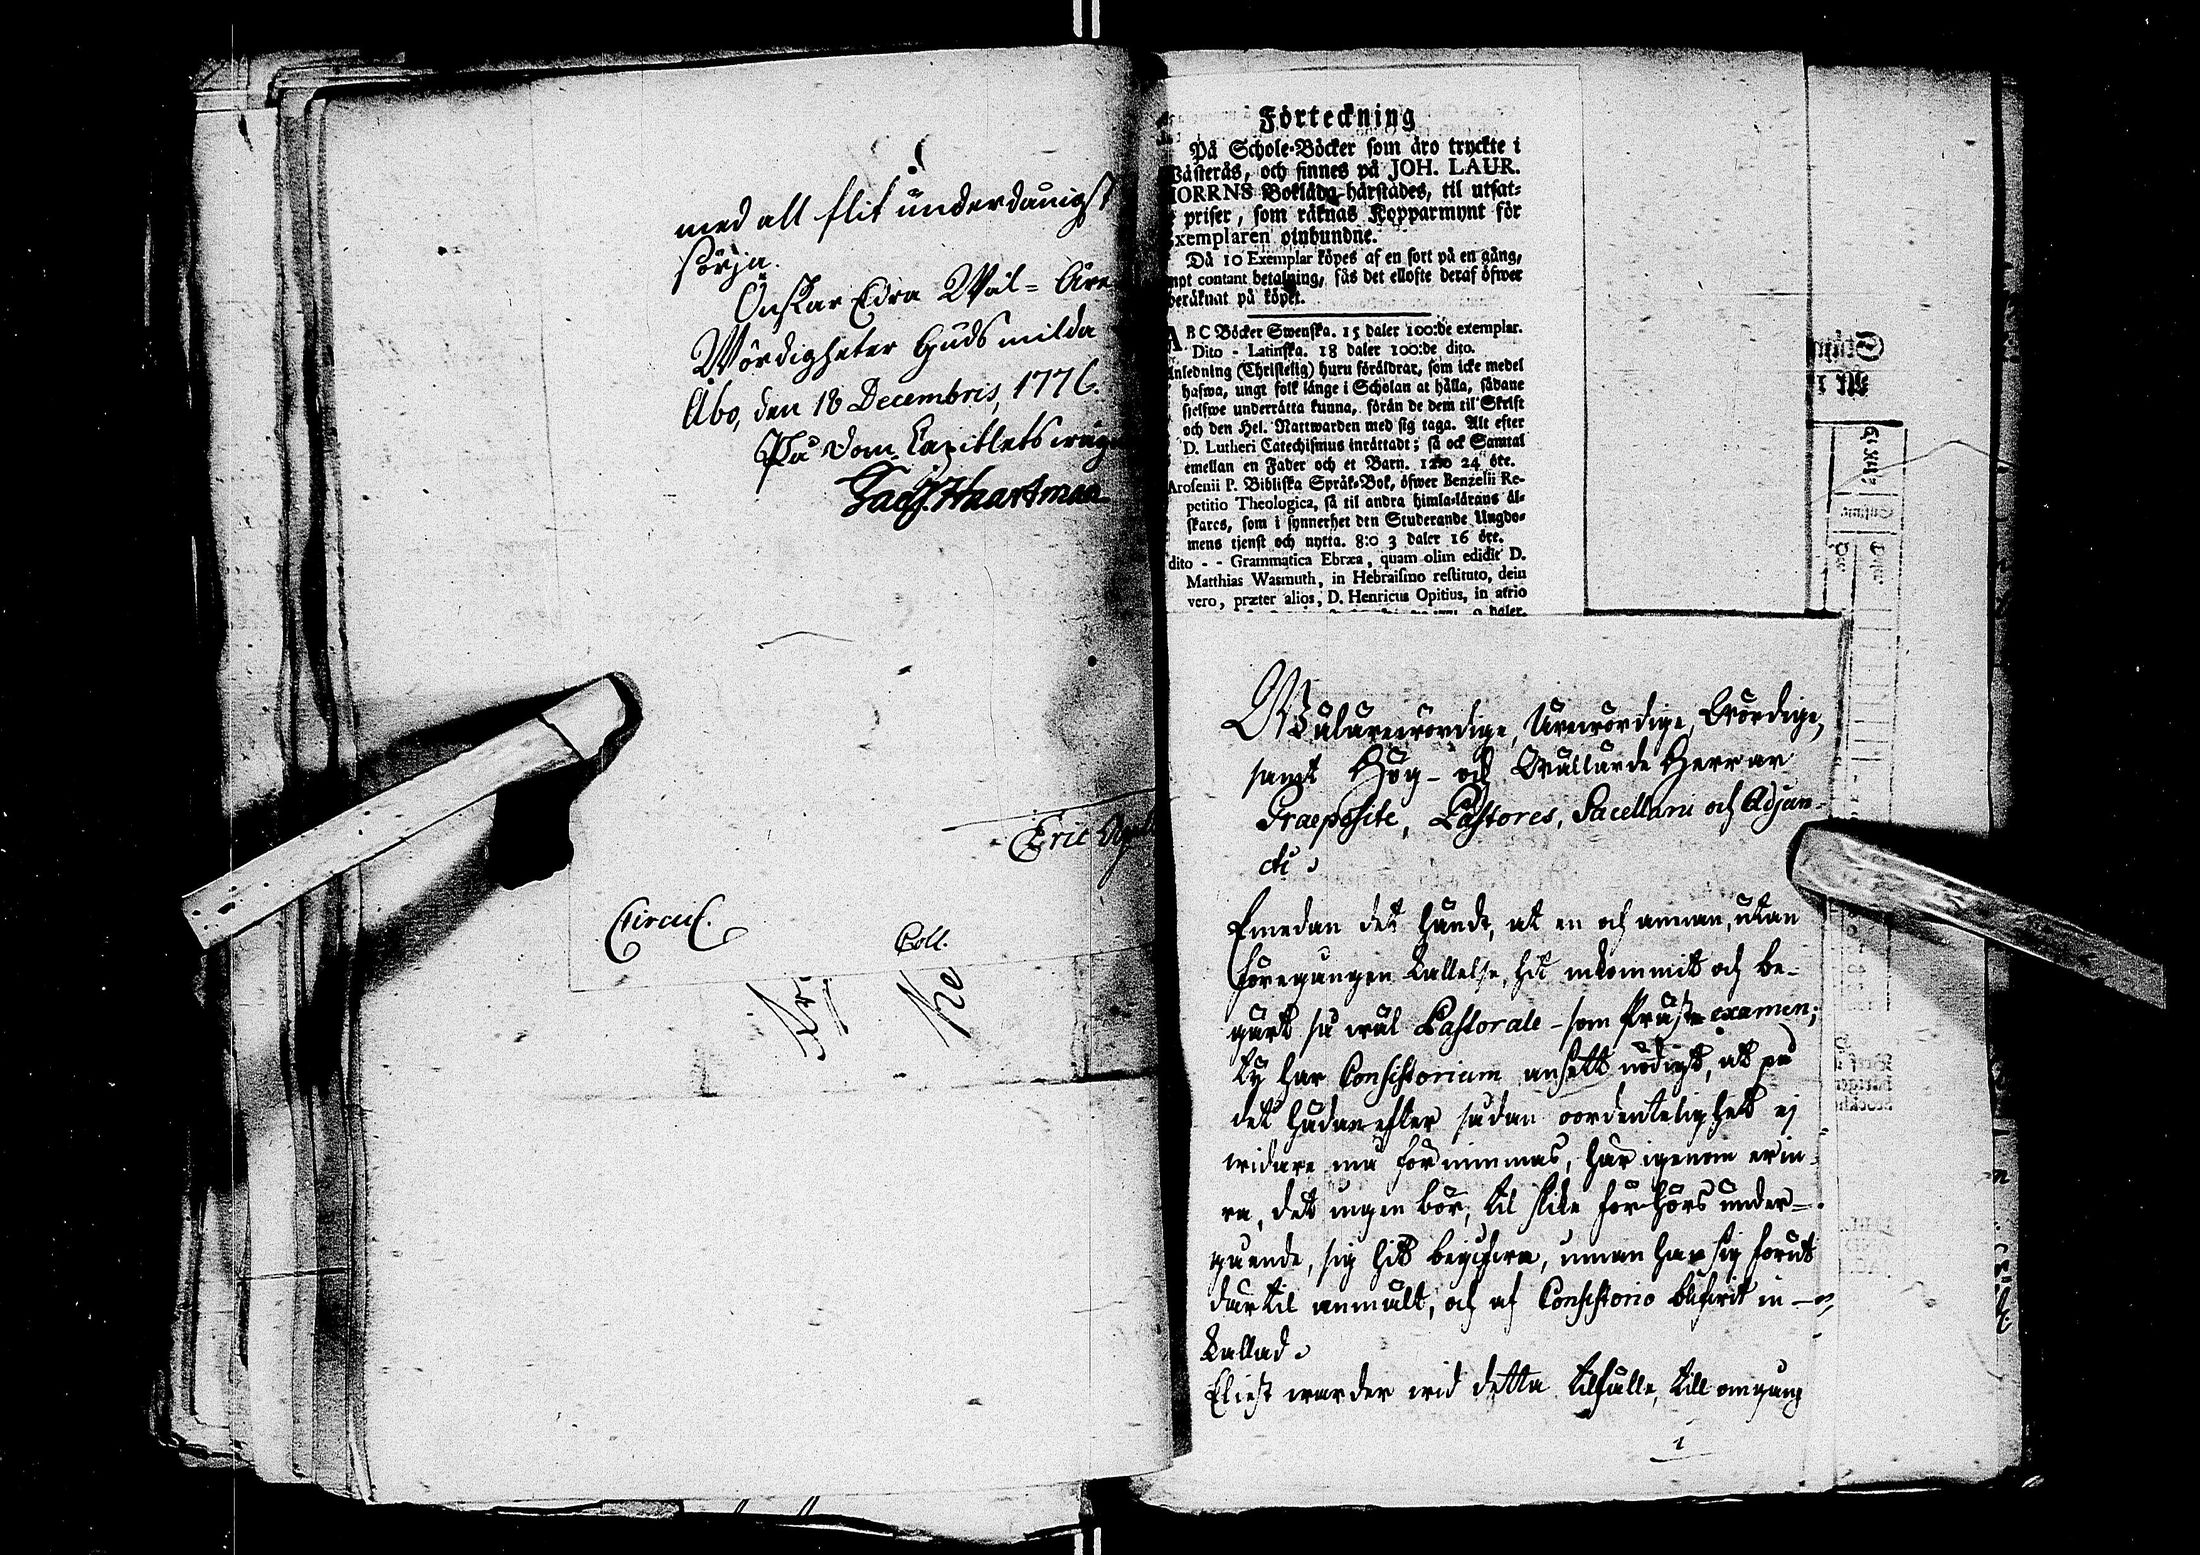 med all flit underdånigst
sörja.
Önskar Edra Wäl- Äre
Wördigheter Guds milda
Åbo, den 18 Decembris, 1776.
På Dom-Capitlets wägn
Jac. Haartman
Eric
Circul.
Coll.
Förteckning
På Schole-Böcker som äro tryckte i
Wästerås, och finnes på JOH. LAUR.
HORRNS Boklåda härstädes, til utsat-
priser, som räknas Kopparmynt för
Exemplaren oinbundne.
Då 10 Exemplar köpes af en sort på en gång,
mot contant betalning, fås det ellofte deraf öfwer
beräknat på köpet.
ABC Böcker Swenska. 15 daler 100:de exemplar.
Dito - Latinska. 18 daler 100:de dito.
Anledning (Christelig) huru föräldrar, som icke medel
hafwa, ungt folk länge i Scholan at hålla, sådane
sielfwe underrätta kunna, förän de dem til Skrift
och den Hel. Nattwarden med sig taga. Alt efter
D. Lutheri Catechismus inrättadt; så ock Samtal
emellan en Fader och et Barn. 12:o 24 öre.
Arosenii P. Bibliska Språk-Bok, öfwer Benzelii Re-
petitio Theologica, så til andra himla-lärans äl-
skares, som i synnerhet den Studerande Ungdo-
mens tjenst och nytta. 8:o 3 daler 16 öre.
dito - - Grammatica Ebræa, quam olim edidit D.
Matthias Wasmuth, in Hebraismo restituto, dein
vero, præter alios, D. Henricus Opitius, in atrio
9 daler.
Wälärewördige, Ärewördige, Wördige,
samt Hög- och Wällärde Herrar
Præposite, Pastores, Sacellani och Adjun-
cti.
Emedan det händt, at en och annan, utan
föregången kallelse, hit inkommit och be-
gärt så wäl Pastorale- som Präste-examen;
ty har Consistorium ansett nödigt, at på
det hädanefter sådan oordentelighet ej
widare må förnimmas, härigenom erin-
ra, det ingen bör, til slike förhörs under-
gående, sig hit begifwa, innan han sig förut
därtil anmält, och af Consistorio blifwit in-
kallad.
Eljest warder wid detta tilfälle, till omgång
1